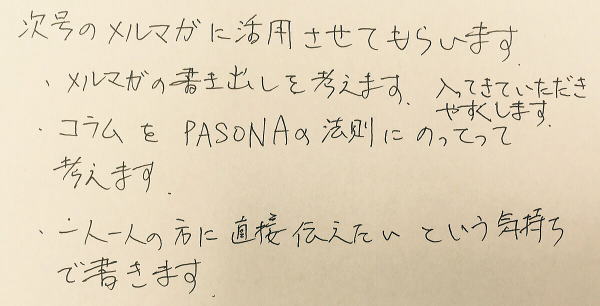 次号のメルマガに活用させてもらいます。
・メルマガの書き出しを考えます。入ってきていただき
やすくします。
・コラムをPASONAの法則にのってって
考えます。
・一人一人の方に直接伝えたいという気持ち
で書きます。